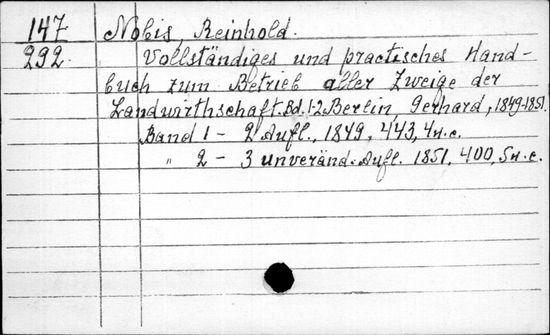 147 Nobis, Reinhold.
292. Vollständiges und practisches Hand-
buch zum Betrieb aller Zweige der
Landwirthschaft. Bd. 1-2 Berlin, Gerhard, 1849-1851.
Band 1 - 2 Aufl., 1849, 443, 4 н.с.
" 2 - 3 unveränd. Aufl. 1851, 400, 5 н.с.